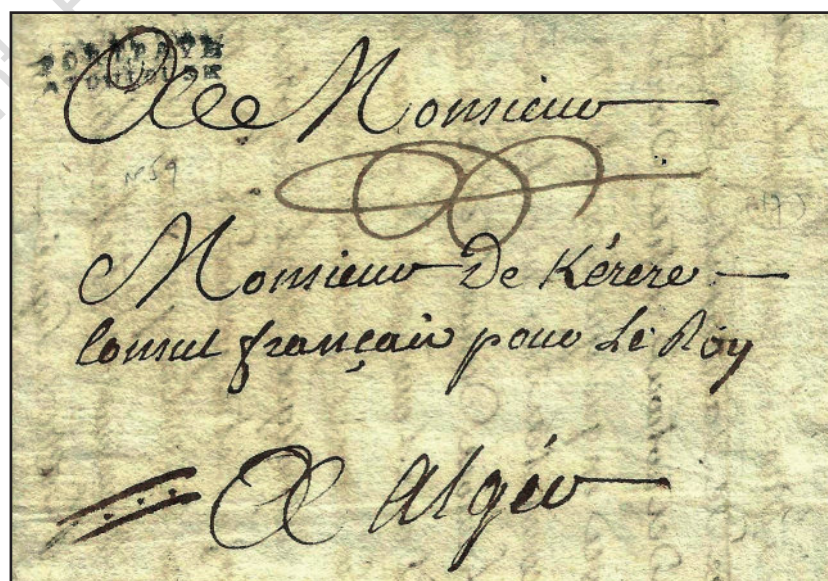 PORT PAYE
A TOULOUSE
A Monsieur
N° 59
Monsieur De Kérere
Consul français pour Le Roy
A Algér